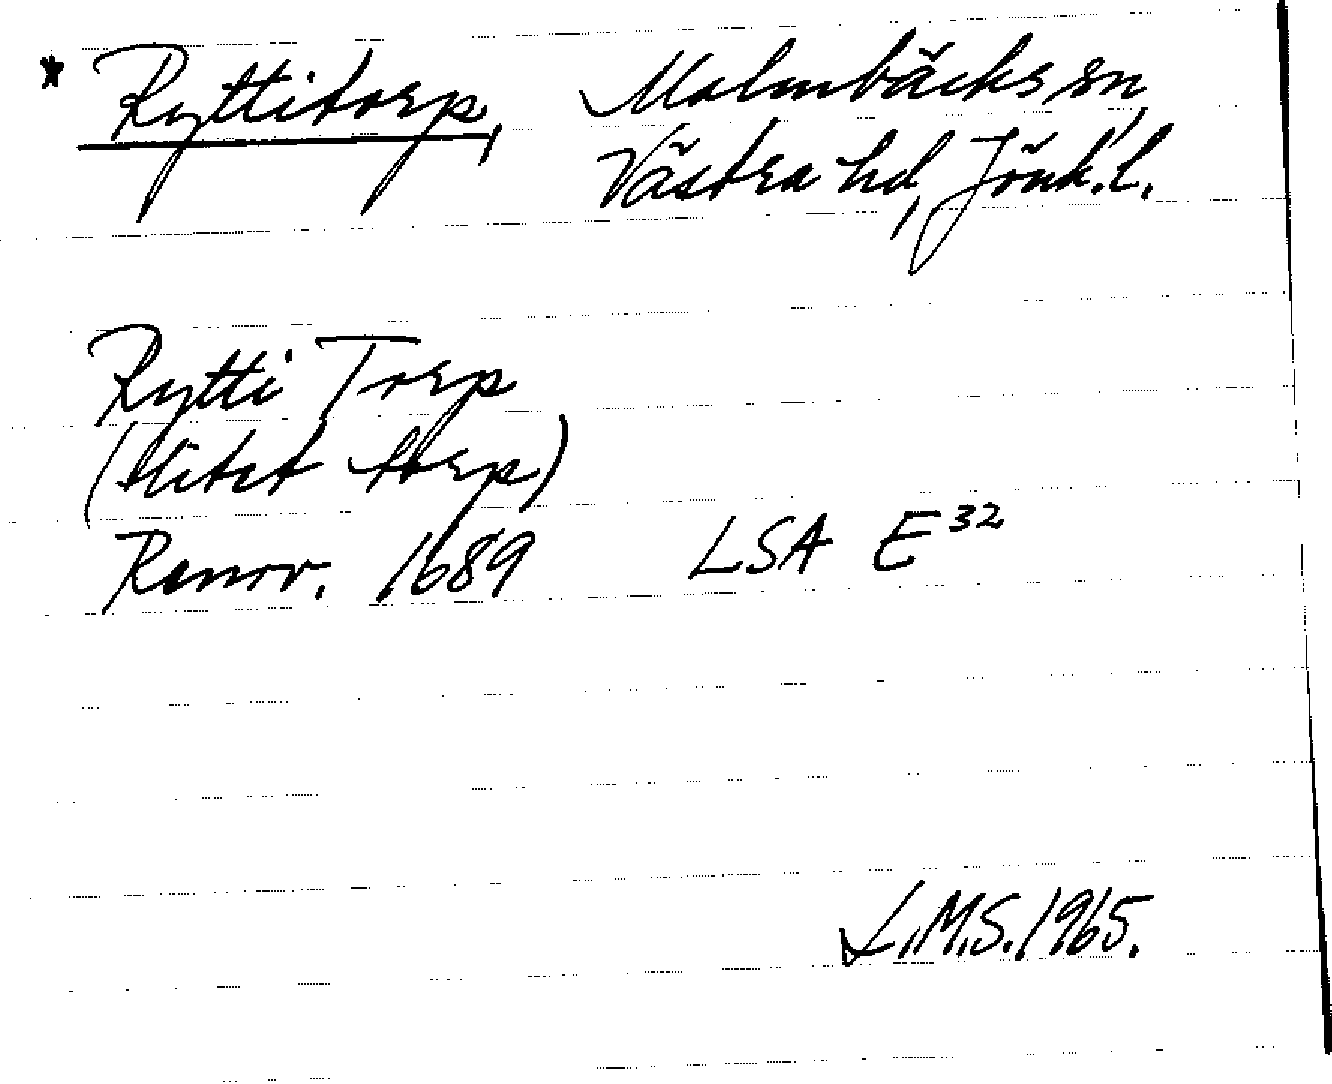 * Ryttitorp, Malmbäcks sn,
Västra hd, Jönk.l.
Rytti Torp
(litet torp)
Renov. 1689 LSA E³²
L.M.S. 1965.